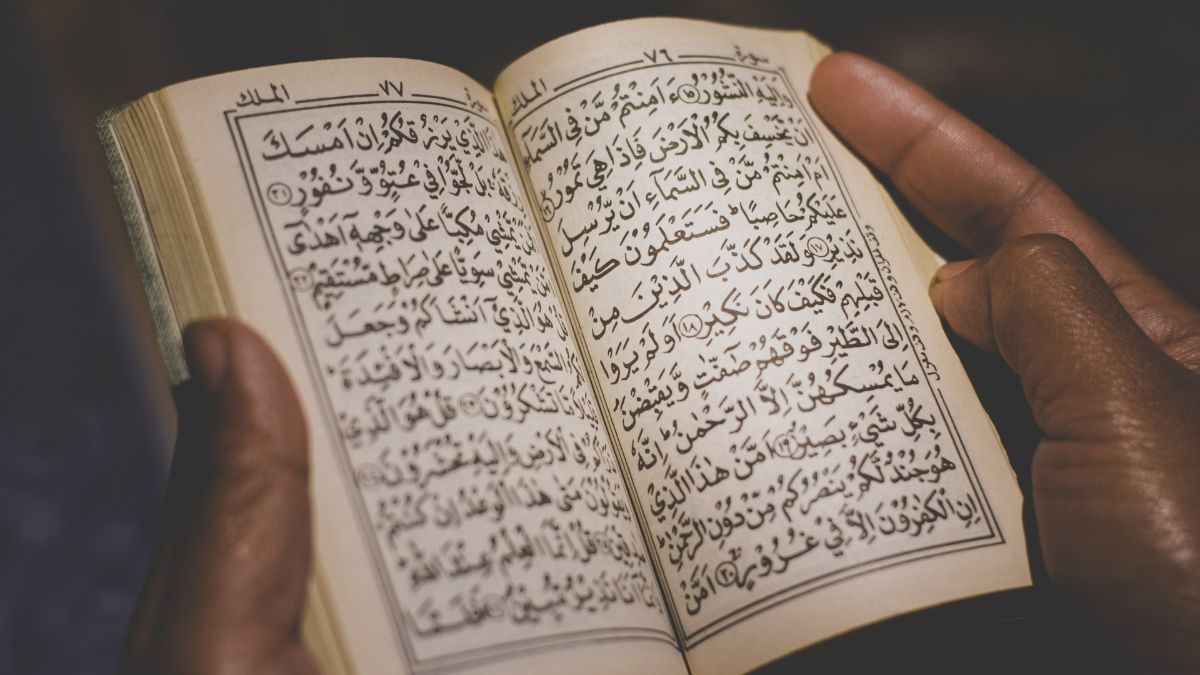 سورة ٧٦ الملك
وَاِلَيْهِ النُّشُوْرُ ١٥ ءَاَمِنْتُمْ مَّنْ فِى السَّمَآءِ
اَنْ يَّخْسِفَ بِكُمُ الْاَرْضَ فَاِذَا هِيَ تَمُوْرُ ١٦
اَمْ اَمِنْتُمْ مَّنْ فِى السَّمَآءِ اَنْ يُّرْسِلَ
عَلَيْكُمْ حَاصِبًا ؕ فَسَتَعْلَمُوْنَ كَيْفَ
نَذِيْرِ ١٧ وَلَقَدْ كَذَّبَ الَّذِيْنَ مِنْ
قَبْلِهِمْ فَكَيْفَ كَانَ نَكِيْرِ ١٨ اَوَلَمْ يَرَوْا
اِلَى الطَّيْرِ فَوْقَهُمْ صٰٓفّٰتٍ وَّيَقْبِضْنَ
مَا يُمْسِكُهُنَّ اِلَّا الرَّحْمٰنُ ؕ اِنَّهٗ
بِكُلِّ شَيْءٍ بَصِيْرٌ ١٩ اَمَّنْ هٰذَا الَّذِيْ
هُوَ جُنْدٌ لَّكُمْ يَنْصُرُكُمْ مِّنْ دُوْنِ الرَّحْمٰنِ ؕ
اِنِ الْكٰفِرُوْنَ اِلَّا فِيْ غُرُوْرٍ ٢٠ اَمَّنْ
٧٧ الملك
هٰذَا الَّذِيْ يَرْزُقُكُمْ اِنْ اَمْسَكَ
رِزْقَهٗ بَلْ لَّجُّوْا فِيْ عُتُوٍّ وَّنُفُوْرٍ ٢١
يَّمْشِيْ مُكِبًّا عَلٰى وَجْهِهٖٓ اَهْدٰٓى
يَّمْشِيْ سَوِيًّا عَلٰى صِرَاطٍ مُّسْتَقِيْمٍ ٢٢
قُلْ هُوَ الَّذِيْٓ اَنْشَاَكُمْ وَجَعَلَ
السَّمْعَ وَالْاَبْصَارَ وَالْاَفْـِٕدَةَ ؕ
مَّا تَشْكُرُوْنَ ٢٣ قُلْ هُوَ الَّذِيْ
فِى الْاَرْضِ وَاِلَيْهِ تُحْشَرُوْنَ ٢٤
وَيَقُوْلُوْنَ مَتٰى هٰذَا الْوَعْدُ اِنْ كُنْتُمْ
صٰدِقِيْنَ ٢٥ قُلْ اِنَّمَا الْعِلْمُ عِنْدَ اللّٰهِ
اَنَا نَذِيْرٌ مُّبِيْنٌ ٢٦ فَلَمَّا